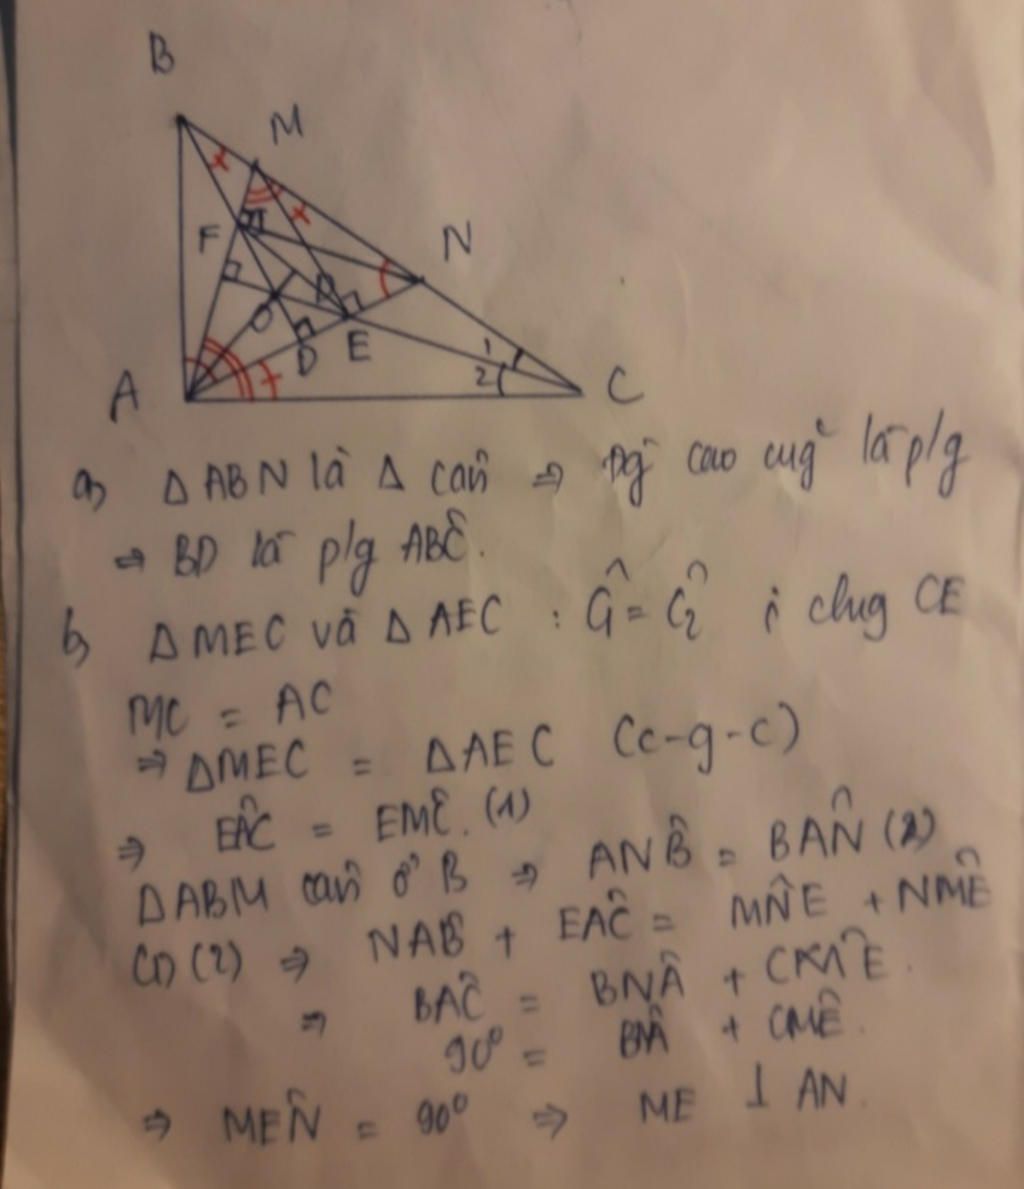 B
M
F
N
O
D
E
A
1
2
C
a) Δ ABN là Δ cân ⇒ đg cao cug̃ là p/g
⇒ BD là p/g ABĈ.
b) Δ MEC và Δ AEC : Ĉ1 = Ĉ2 ; chug CE
MC = AC
⇒ ΔMEC = ΔAEC (c-g-c)
⇒ EÂC = EMĈ. (1)
ΔABM cân ở B ⇒ ANB̂ = BAN̂ (2)
(1) (2) ⇒ NAB̂ + EAĈ = MN̂E + NMÊ
⇒ BAĈ = BNÂ + CM̂E.
90° = BNÂ + CMÊ.
⇒ MEN̂ = 90° ⇒ ME ⊥ AN.